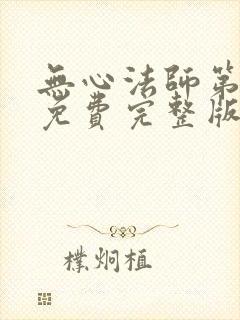 無心法師第
免費完整版
樸炯植